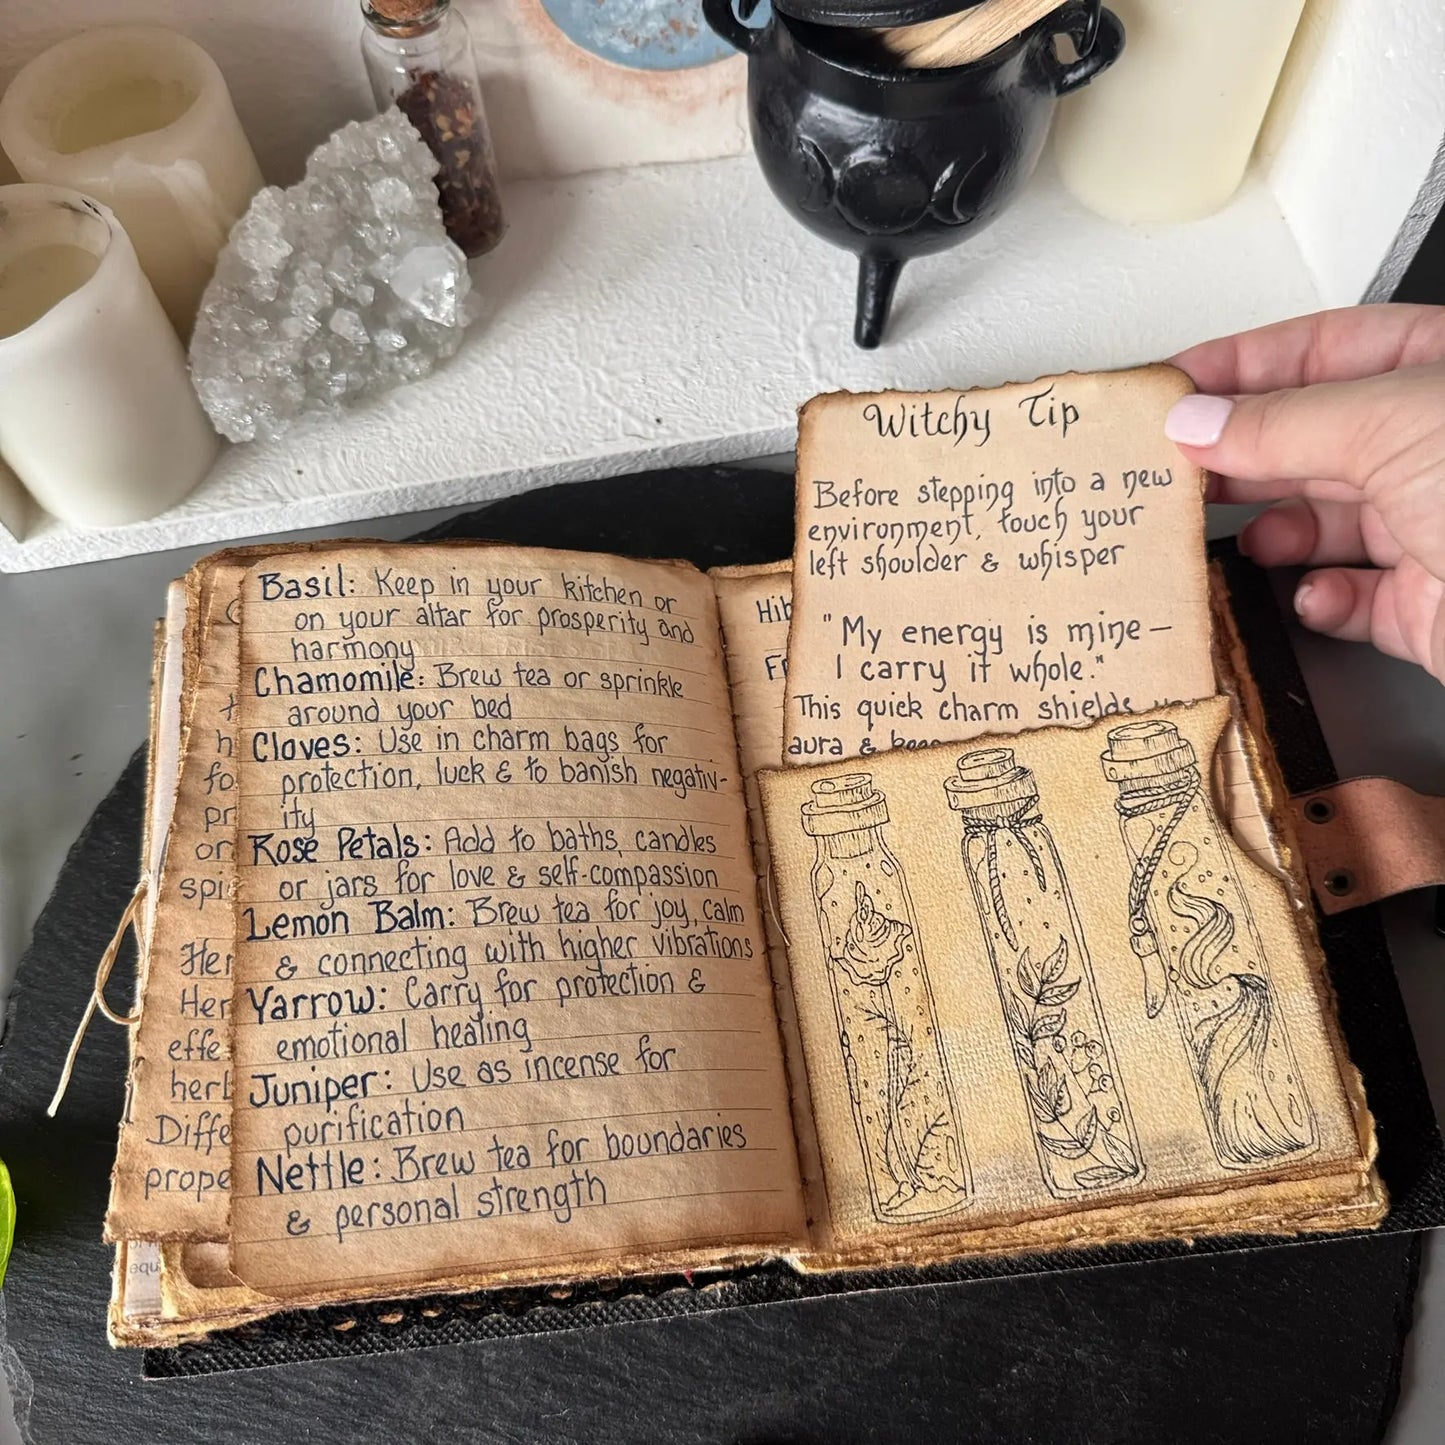 Basil: Keep in your kitchen or
on your altar for prosperity and
harmony
Chamomile: Brew tea or sprinkle
around your bed
Cloves: Use in charm bags for
protection, luck & to banish negativ-
ity
Rose Petals: Add to baths, candles
or jars for love & self-compassion
Lemon Balm: Brew tea for joy, calm
& connecting with higher vibrations
Yarrow: Carry for protection &
emotional healing
Juniper: Use as incense for
purification
Nettle: Brew tea for boundaries
& personal strength
h
fo
pr
or
spi
Her
Her
effe
herb
Diffe
prope
Hib
Witchy Tip
Before stepping into a new
environment, touch your
left shoulder & whisper
"My energy is mine—
I carry it whole."
This quick charm shields
aura &